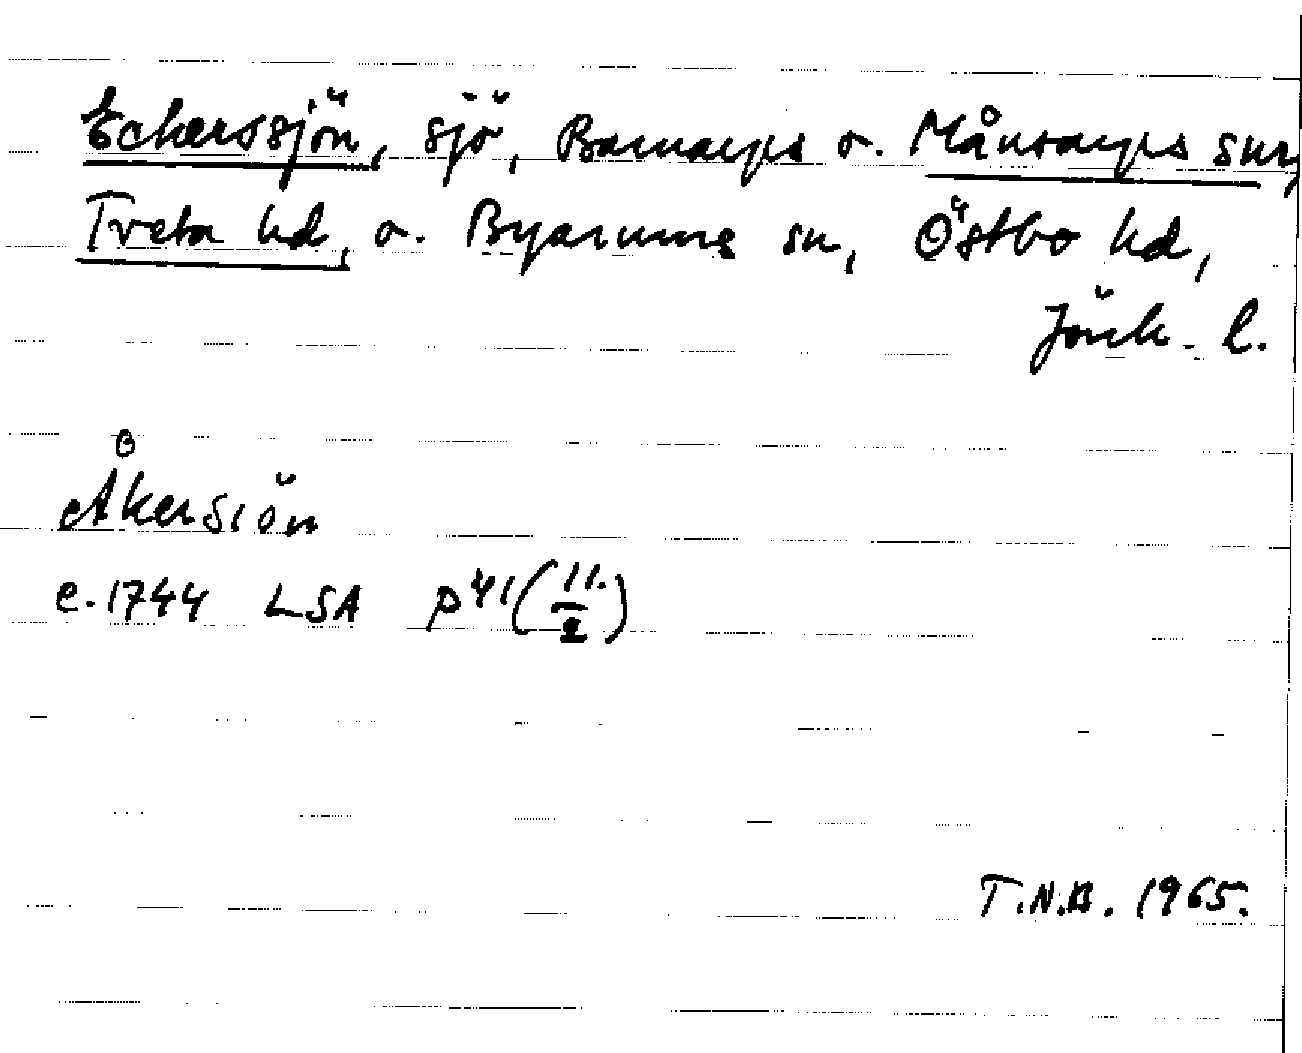 Eckerssjön, sjö, Barnarps o. Månsarps snr,
Tveta hd, o. Byarums sn, Östbo hd,
Jönk. l.
Åkersiön
c. 1744 LSA P 41 (11./2)
T.N.B. 1965.